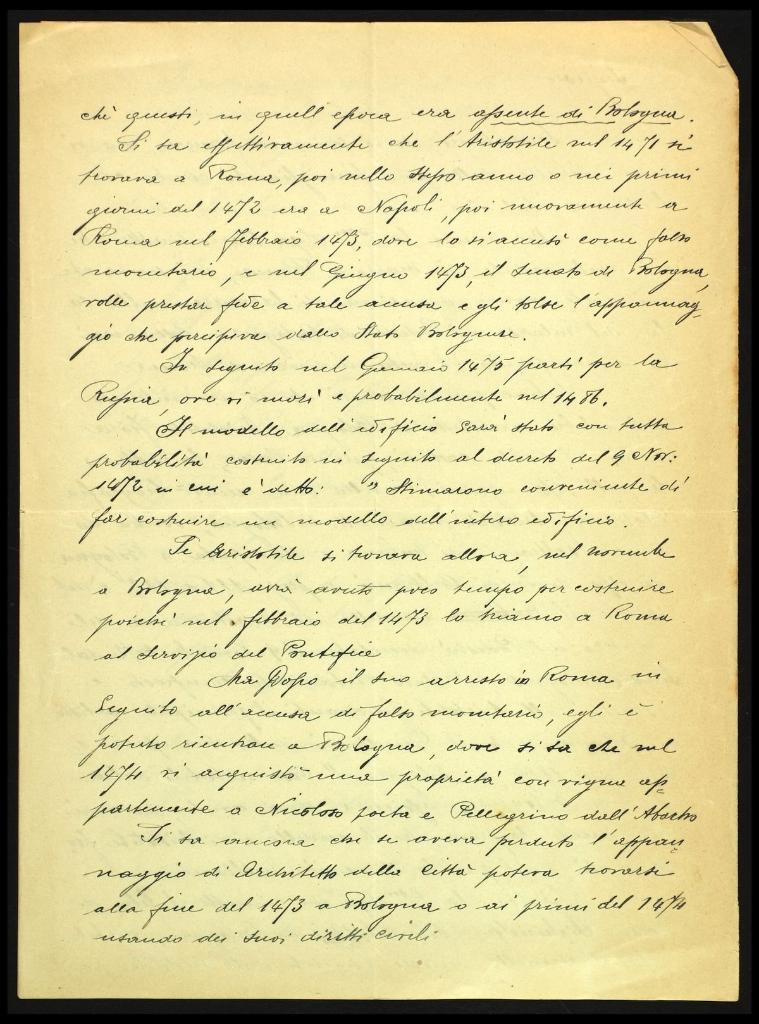 chè questi, in quell'epoca era assente di Bologna.
Si sa effettivamente che l'Aristotile nel 1471 si
trovava a Roma, poi nello stesso anno o nei primi
giorni del 1472 era a Napoli, poi nuovamente a
Roma nel febbraio 1473, dove lo si accusò come falso
monetario, e nel Giugno 1473, il Senato di Bologna,
volle prestar fede a tale accusa e gli tolse l'appannag-
gio che percepiva dallo Stato Bolognese.
In seguito nel Gennaio 1475 partì per la
Russia, ove vi morì e probabilmente nel 1486.
Il modello dell'edificio sarà stato con tutta
probabilità costruito in seguito al decreto del 9 Nov:
1472 in cui è detto: "Stimarono conveniente di
far costruire un modello dell'intero edificio.
Se Aristotile si trovava allora, nel novembre
a Bologna, avrà avuto poco tempo per costruire
poichè nel febbraio del 1473 lo troviamo a Roma
al Servizio del Pontefice
Ma Dopo il suo arresto in Roma in
Seguito all'accusa di falso monetario, egli è
potuto rientrare a Bologna, dove si sa che nel
1474 vi acquistò una proprietà con vigna ap-
partenente a Nicoloso poeta e Pellegrino dall'Abacho
Si sa ancora che se aveva perduto l'appan-
naggio di Architetto della Città poteva trovarsi
alla fine del 1473 a Bologna o ai primi del 1474
usando dei suoi diritti civili